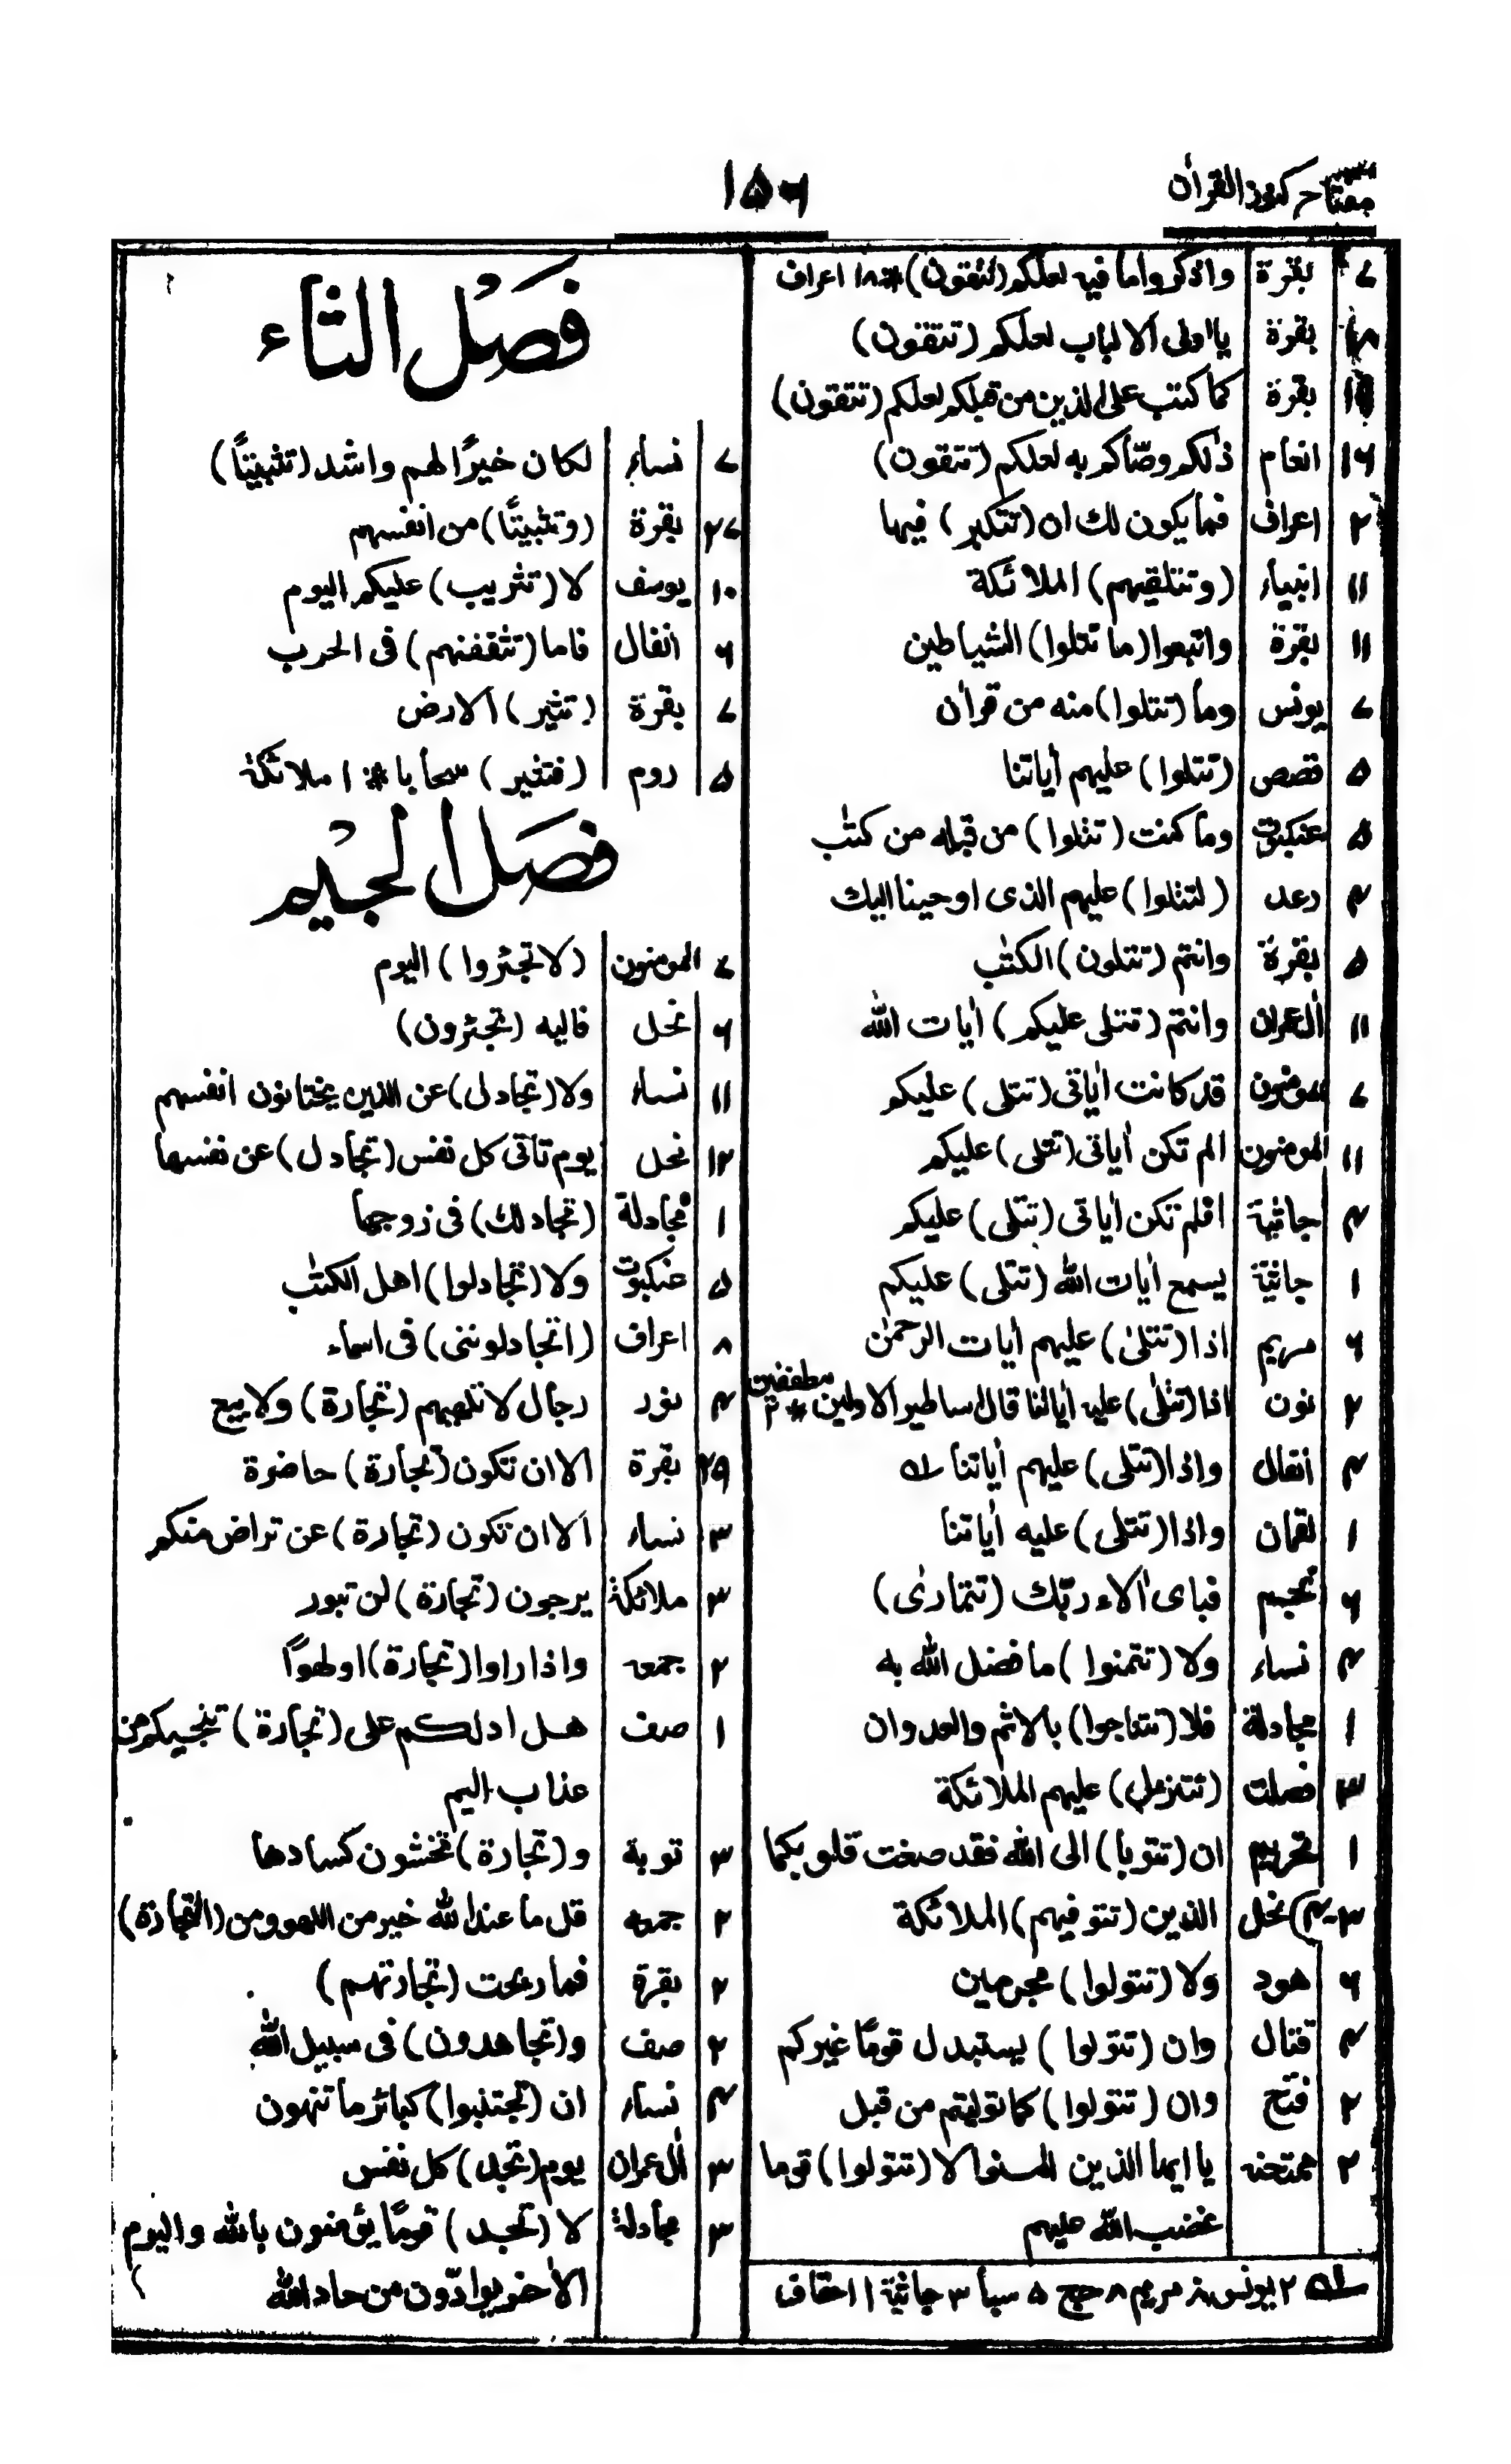 مفتاح كنوز القران
١٥٦
٧ بقرة واذكروا ما فيه لعلكم (تتقون)* ١٨ اعراف
بقرة يا اولى الالباب لعلكم (تتقون)
بقرة كما كتب على الذين من قبلكم لعلكم (تتقون)
١٦ انعام ذٰلكم وصّاكم به لعلكم (تتقون)
٢ اعراف فما يكون لك ان (تتكبر) فيها
١١ انبياء (وتتلقيهم) الملائكة
١١ بقرة واتبعوا (ما تتلوا) الشياطين
٧ يونس وما (تتلوا) منه من قراٰن
٥ قصص (تتلوا) عليهم اٰياتنا
٥ عنكبوت وما كنت (تتلوا) من قبله من كتٰب
٤ رعد (لتتلوا) عليهم الذى اوحينا اليك
٥ بقرة وانتم (تتلون) الكتٰب
١١ اٰل عمران وانتم (تتلى عليكم) اٰيات الله
٧ مومنون قد كانت اٰياتى (تتلى) عليكم
١١ المومنون الم تكن اٰياتى (تتلى) عليكم
٤ جاثية افلم تكن اٰياتى (تتلى) عليكم
١ جاثية يسمع اٰيات الله (تتلى) عليكم
٦ مريم اذا (تتلىٰ) عليهم اٰيات الرحمٰن
٢ نون اذا (تتلىٰ) عليه اٰياتنا قال اساطير الاولين * ٣ مطففين
٤ انفال واذا (تتلى) عليهم اٰياتنا ٥١
١ لقمان واذا (تتلى) عليه اٰياتنا
٦ نجم فباى اٰلاء ربّك (تتمارىٰ)
٤ نساء ولا (تتمنوا) ما فضل الله به
١ مجادلة فلا (تتناجوا) بالاثم والعدوان
٣ فصلت (تتنزل) عليهم الملائكة
١ تحريم ان (تتوبا) الى الله فقد صغت قلوبكما
٣-٤ نحل الذين (تتوفيهم) الملائكة
٦ هود ولا (تتولوا) مجرمين
٤ قتال وان (تتولوا) يستبدل قومًا غيركم
٢ فتح وان (تتولوا) كما توليتم من قبل
٢ ممتحنه يا ايها الذين اٰمنوا لا (تتولوا) قوما
غضب الله عليهم
٥١ ٢ يونس ٨ مريم ٨ حج ٥ سبأ ٣ جاثية ١ احقاف
فصل الثاء
٧ نساء لكان خيرًا لهم واشد (تثبيتًا)
٢٧ بقرة (وتثبيتًا) من انفسهم
١٠ يوسف لا (تثريب) عليكم اليوم
٦ انفال فاما (تثقفنهم) فى الحرب
٧ بقرة (تثير) الارض
٥ روم (فتثير) سحابا * ١ ملائكة
فصل الجيم
٧ المومنون (لا تجئروا) اليوم
٦ نحل فاليه (تجئرون)
١١ نساء ولا (تجادل) عن الذين يختانون انفسهم
١٢ نحل يوم تاتى كل نفس (تجادل) عن نفسها
١ مجادلة (تجادلك) فى زوجها
٥ عنكبوت ولا (تجادلوا) اهل الكتٰب
٨ اعراف (اتجادلوننى) فى اسماء
٤ نور رجال لا تلهيهم (تجارة) ولا بيع
٢٩ بقرة الا ان تكون (تجارة) حاضرة
٣ نساء الا ان تكون (تجارة) عن تراض منكم
٣ ملائكة يرجون (تجارة) لن تبور
٢ جمعه واذا راوا (تجارة) او لهوًا
١ صف هل ادلكم على (تجارة) تنجيكم من
عذاب اليم
٣ توبة و(تجارة) تخشون كسادها
٢ جمعه قل ما عند الله خير من اللهو ومن (التجارة)
٢ بقرة فما ربحت (تجارتهم)
٢ صف و(تجاهدون) فى سبيل الله
٤ نساء ان (تجتنبوا) كبائر ما تنهون
٣ اٰل عمران يوم (تجد) كل نفس
٣ مجادلة لا (تجد) قومًا يؤمنون بالله واليوم
الاٰخر يوادّون من حاد الله